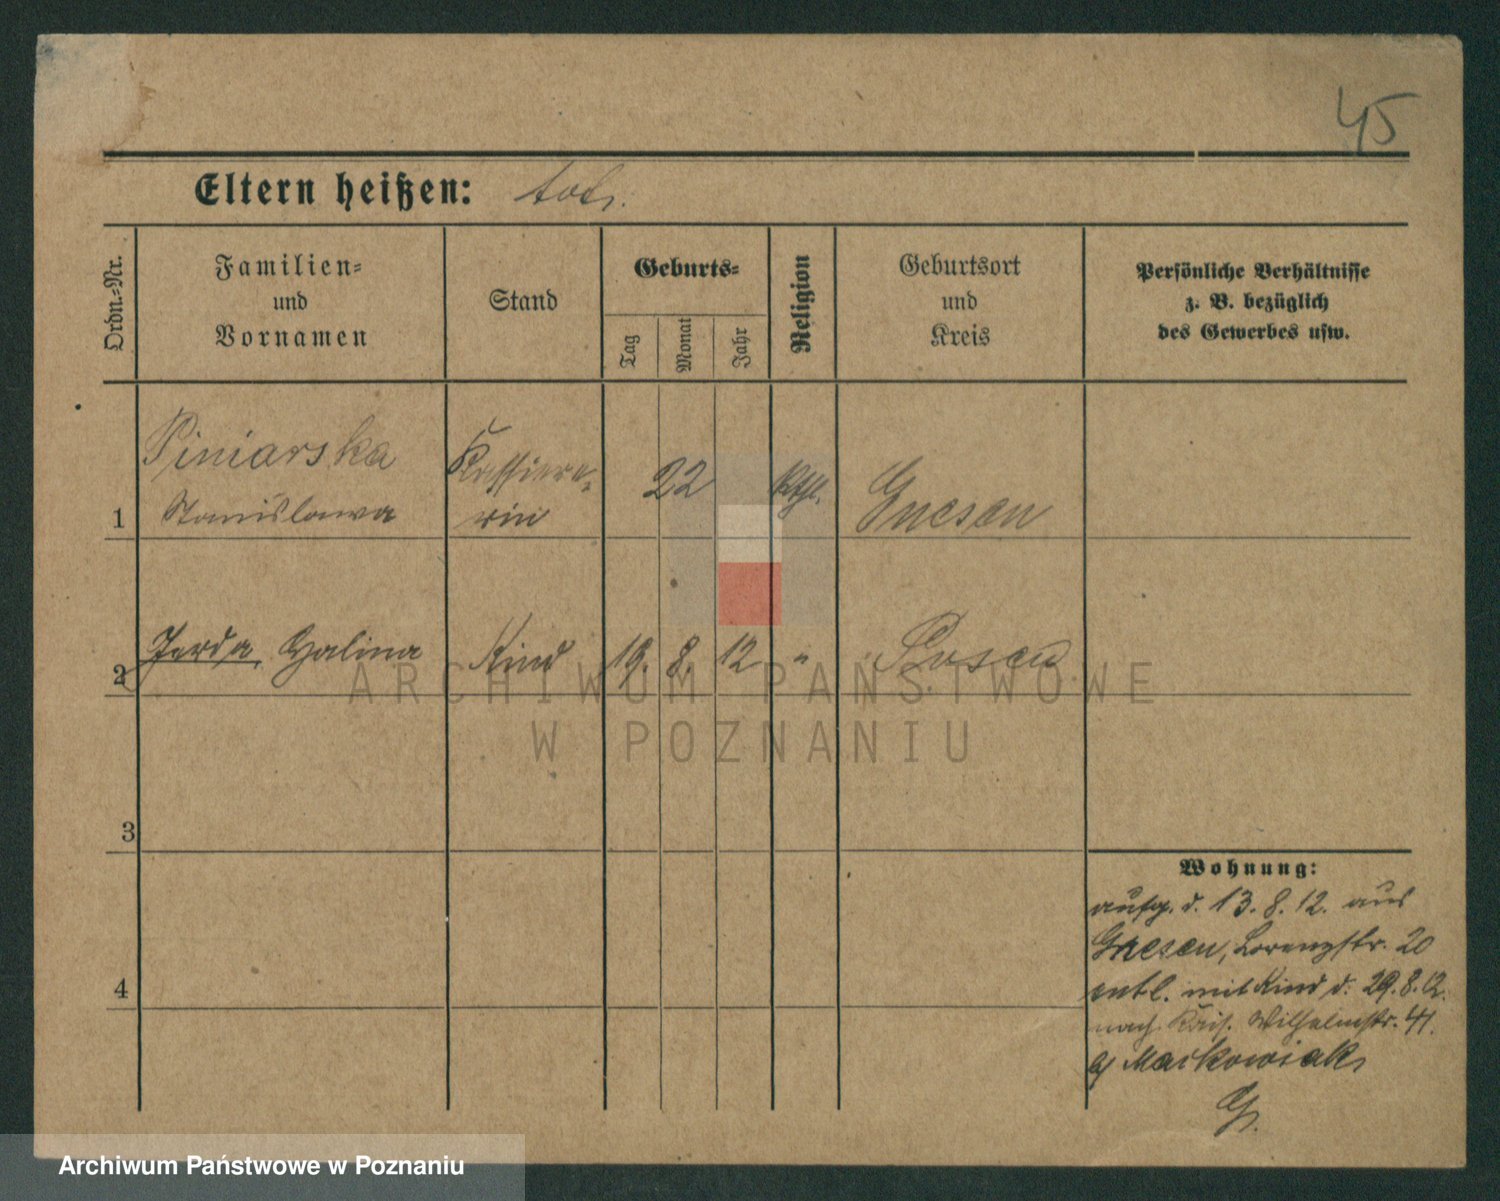 45
Eltern heißen: tot.
Ordn.-Nr.
Familien-
und
Vornamen
Stand
Geburts-
Tag
Monat
Jahr
Religion
Geburtsort
und
Kreis
Persönliche Verhältnisse
z. B. bezüglich
des Gewerbes usw.
Piniarska Kassiere-
1 Stanislawa rin 22 kth. Gnesen
2 Jerda, Halina Kind 19. 8. 12 " Posen
ARCHIWUM PAŃSTWOWE
W POZNANIU
3
Wohnung:
aufg. d. 13. 8. 12. aus
Gnesen, Lorenzstr. 20
4
entl. mit Kind d. 29. 8. 12.
nach Kais. Wilhelmstr. 41.
b/ Markowiak
G.
Archiwum Państwowe w Poznaniu